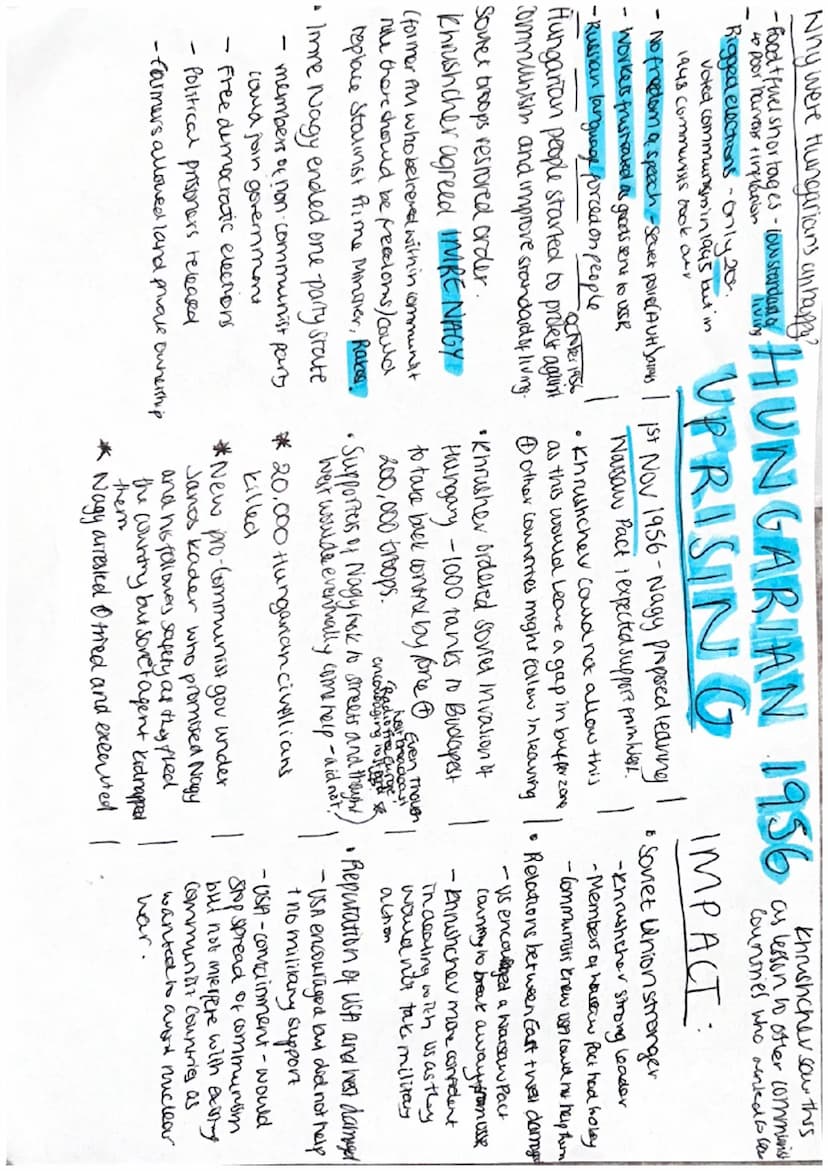 HUNGARIAN 1956
UPRISING
Why were Hungarians unhappy?
- Food & fuel shortages - low standard of living
to poor harvest + inflation
Rigged elections - only 20%
voted communism in 1945 but in
1948 communists took over
- No freedom of speech - secret police (AVH)
- Workers frustrated as goods sent to USSR
- Russian language forced on people
October 1956
Hungarian people started to protest against
communism and improve standard of living.
Soviet troops restored order.
Khrushchev agreed IMRE NAGY
(former PM who believed within communist
rule there should be freedoms) could
replace Stalinist Prime Minister, Rakosi.
• Imre Nagy ended one-party state
- members of non-communist party
could join government
- Free democratic elections
- Political prisoners released
- Farmers allowed land private ownership
1st Nov 1956 - Nagy proposed leaving
Warsaw Pact, expected support from West.
• Khrushchev could not allow this
as this would leave a gap in buffer zone
+ other countries might follow in leaving
• Khrusher ordered soviet invasion of
Hungary - 1000 tanks to Budapest
to take back control by force +
200,000 troops.
Even though
Radio Free Europe
had broadcast
encouraging
• Supporters of Nagy took to streets and thought
West would eventually come help - did not!
* 20,000 Hungarian civilians
killed
* New pro-communist gov under
Janos Kadar who promised Nagy
and his followers safety as they fled
the country but soviet agent kidnapped
them
* Nagy arrested + tried and executed
Khrushchev saw this
as lesson to other communist
countries who wanted to leave
IMPACT:
• Soviet Union stronger
- Khrushchev strong leader
- Members of Warsaw Pact had to obey
- Communists knew USA could not help them
• Relations between East + West damaged
- US encouraged a Warsaw Pact
country to break away from USSR
- Khrushchev more confident
in dealing with US as they
would not take military
action
• Reputation of USA and West damaged
- USA encouraged but did not help
+ no military support
- USA - containment - would
stop spread of communism
but not interfere with existing
communist countries as
wanted to avoid nuclear
war.